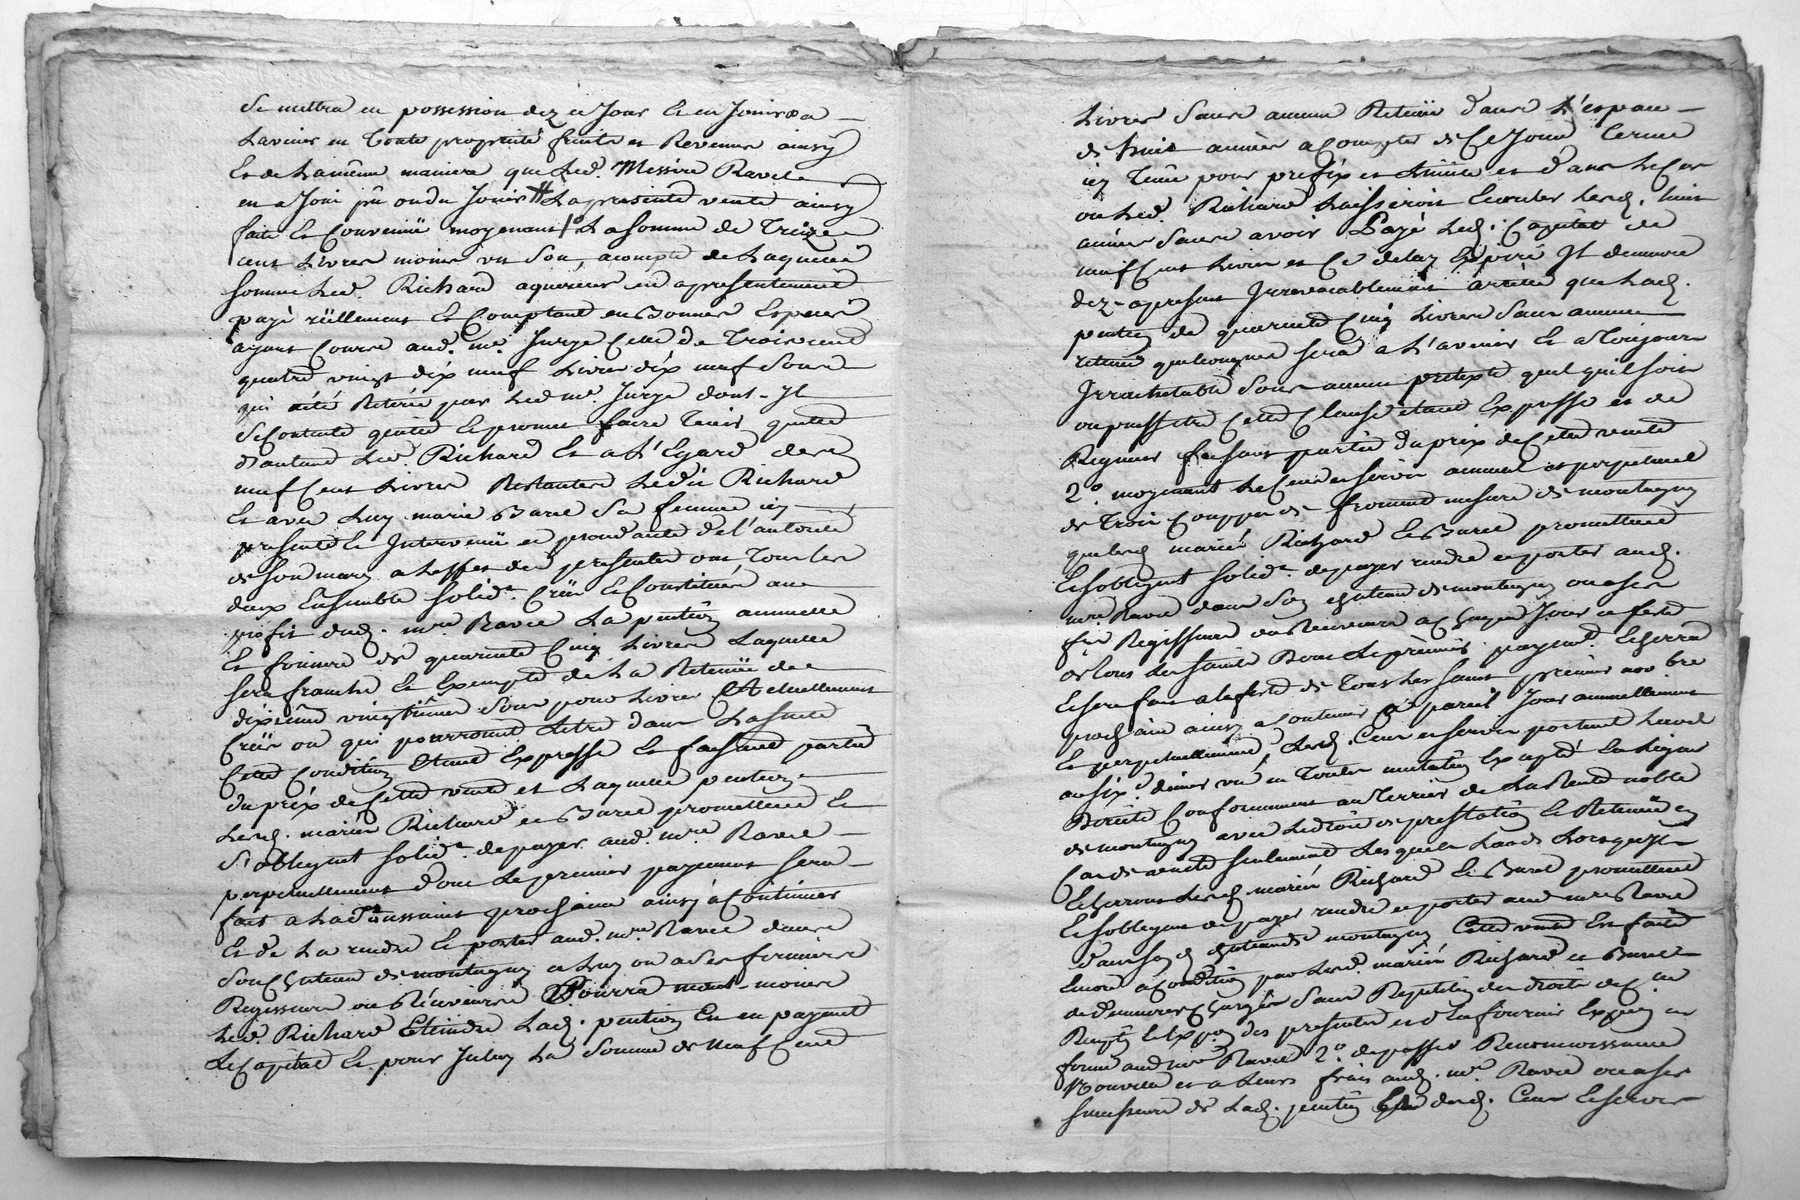 Se mettra en possession dez ce Jour Et en Jouira a
Lavenir en Toute proprieté fruits et Revenus ainsy
Et de La même maniere que Led. Messire Ravel
en a Joui pû ou du Jouir # La presente vente ainsy
faite Et Convenüe moyenant 1° La somme de Treize
cent Livres moins un Sou, acompte de Laquelle
somme Led. Richard aquereur en a presentement
payé réellement Et Comptant en Bonnes Especes
ayant Cours aud. mre Jurye Celle de Trois cent
quatre vingt dix neuf Livres dix neuf Sous
qui a été Retirée par Led mre Jurye dont Il
Se Contente quitte Et promet faire Tenir quitte
d'autant Led. Richard Et a L'Egard des
neuf Cent Livres Restantes Ledit Richard
Et avec Luy marie Burel Sa femme icy
presente Et Intervenüe et procedante de l'autorité
de Son mary a L'effet des presentes ont Tous les
deux Ensemble Solidt. Créé Et Constitué au
profit dud. mre Ravel La pention annuelle
Et fonciere de quarante Cinq Livres Laquelle
Sera franche Et Exempte de La Retenüe des
dixiême vingtiême Sous pour Livre Actuellement
Créés ou qui pourront L'etre dans La suite
Cette Condition Etant Expresse Et faisant partie
du prix de Cette vente et Laquelle pention
Lesd. mariés Richard et Burel promettent Et
S'obligent Solidt. de payer aud. mre Ravel
perpetuellement dont Le premier payement Sera
fait a La Toussaint prochaine ainsy à Continuer
Et de La rendre Et porter aud. mre Ravel dans
Son Chateau de montagny a Luy ou a Ses fermiers
Regisseurs ou Receveurs Pourra neant-moins
Led. Richard Eteindre Lad. pention En en payant
Le Capital Et pour Iceluy La Somme de neuf Cent
Livres Sans aucune Retenüe dans L'espace
de huit années a Compter de Ce Jour Terme
icy Tenu pour prefix et Limité et dans Le Cas
ou Led. Richard Laisseroit Ecouler Lesd. huit
années Sans avoir Payé Led. Capital de
neuf Cent Livres et Ce delay Expiré Il demeure
dez-apresent Irrevocablement arrêté que Lad.
pention de quarante Cinq Livres Sans aucune
retenue quelconque Sera a L'avenir Et a Toujours
Irrachetable Sous aucun pretexte quel qu'il soit
ou puisse etre Cette Clause étant Expresse et de
Rigueur faisant partie du prix de Cette vente
2° moyenant Le Cens et Servis annuel et perpetuel
de Trois Couppes de froment mesure de montagny
que Lesd mariés Richard Et Burel promettent
Et S'obligent Solidt. de payer rendre et porter aud.
mre Ravel dans Son Chateau de montagny ou a Ses
Regisseurs ou Receveurs a Chaque Jour et feste
de Tous Les Saints Dont Le premier payemt. Echerra
Et Sera fait a La feste de Tous Les Saints premier novbre
prochain ainsy a Continuer a pareil Jour annuellement
Et perpetuellement Lesd. Cens et Servis portant Lods
au Sixe. denier vû en Toutes mutations Excepté En Ligne
Directe Conformement au Terrier de La Rente noble
de montagny avec Le droit de prestation Et Retenüe en
Cas de vente Seulement Lesquels Lods Lorsqu'ils
Echerront Lesd mariés Richard Et Burel promettent
Et S'obligent de payer rendre et porter aud mre Ravel
dans Son d Chateau de montagny Cette vente Est faite
Encore a Condition par Lesd. mariés Richard et Burel
de demeurer Chargés Sans Repetition des droits de Ctle
Recepte Et Expon des presentes et d'en fournir Expon en
forme aud mre Ravel 2° de passer Reconnoissance
Nouvelle et a Leurs frais aud. mre Ravel ou a Ses
Successeurs de Lad. pention Et desd. Cens Et Servis